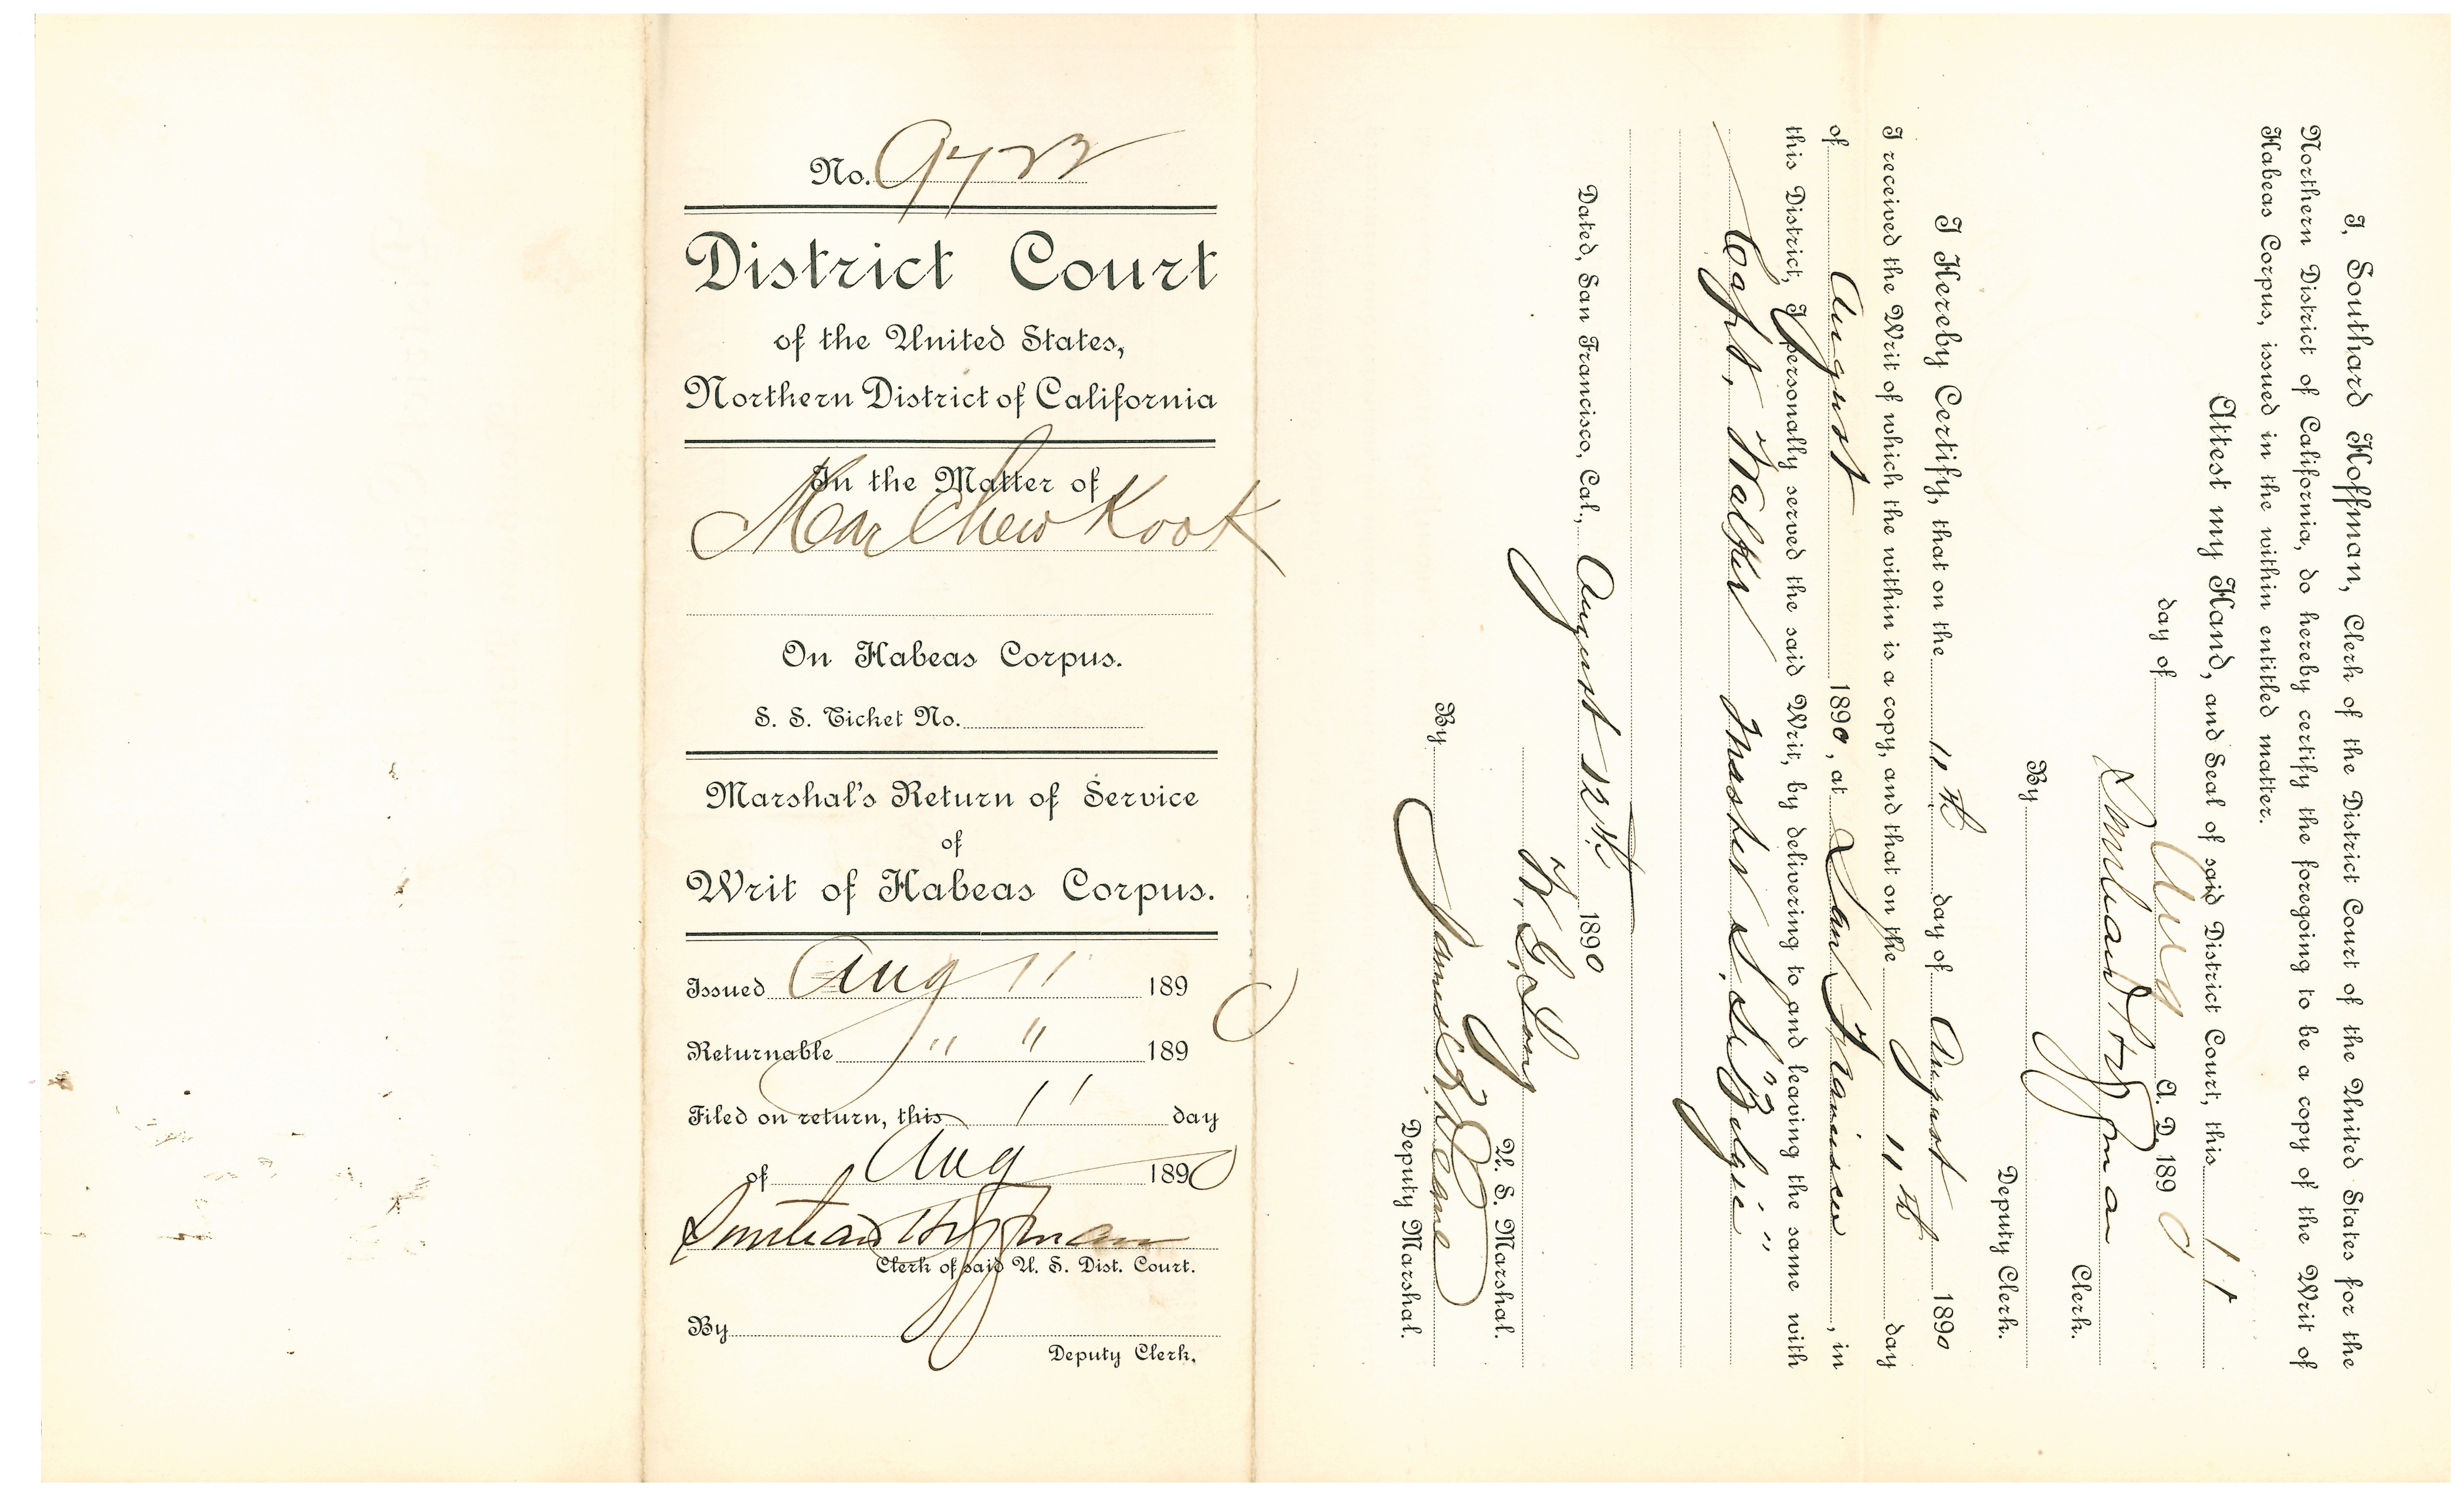 No. 9722
District Court
of the United States,
Northern District of California
In the Matter of
Mar Chew Kook
On Habeas Corpus.
S. S. Ticket No.
Marshal's Return of Service
of
Writ of Habeas Corpus.
Issued Aug 11 1890
Returnable " " 189
Filed on return, this 11 day
of Aug 1890
Southard Hoffman
Clerk of said U. S. Dist. Court.
By
Deputy Clerk.
I, Southard Hoffman, Clerk of the District Court of the United States for the
Northern District of California, do hereby certify the foregoing to be a copy of the Writ of
Habeas Corpus, issued in the within entitled matter.
Attest my Hand, and Seal of said District Court, this 11
day of Aug A. D. 1890
Southard Hoffman
Clerk.
By
Deputy Clerk.
I Hereby Certify, that on the 11th day of August 1890
I received the Writ of which the within is a copy, and that on the 11th day
of August 1890, at San Francisco, in
this District, I personally served the said Writ, by delivering to and leaving the same with
Capt. Walker Master S. S. "Belgic"
Dated, San Francisco, Cal., August 12th 1890
W. G. Long
U. S. Marshal.
By James
Deputy Marshal.